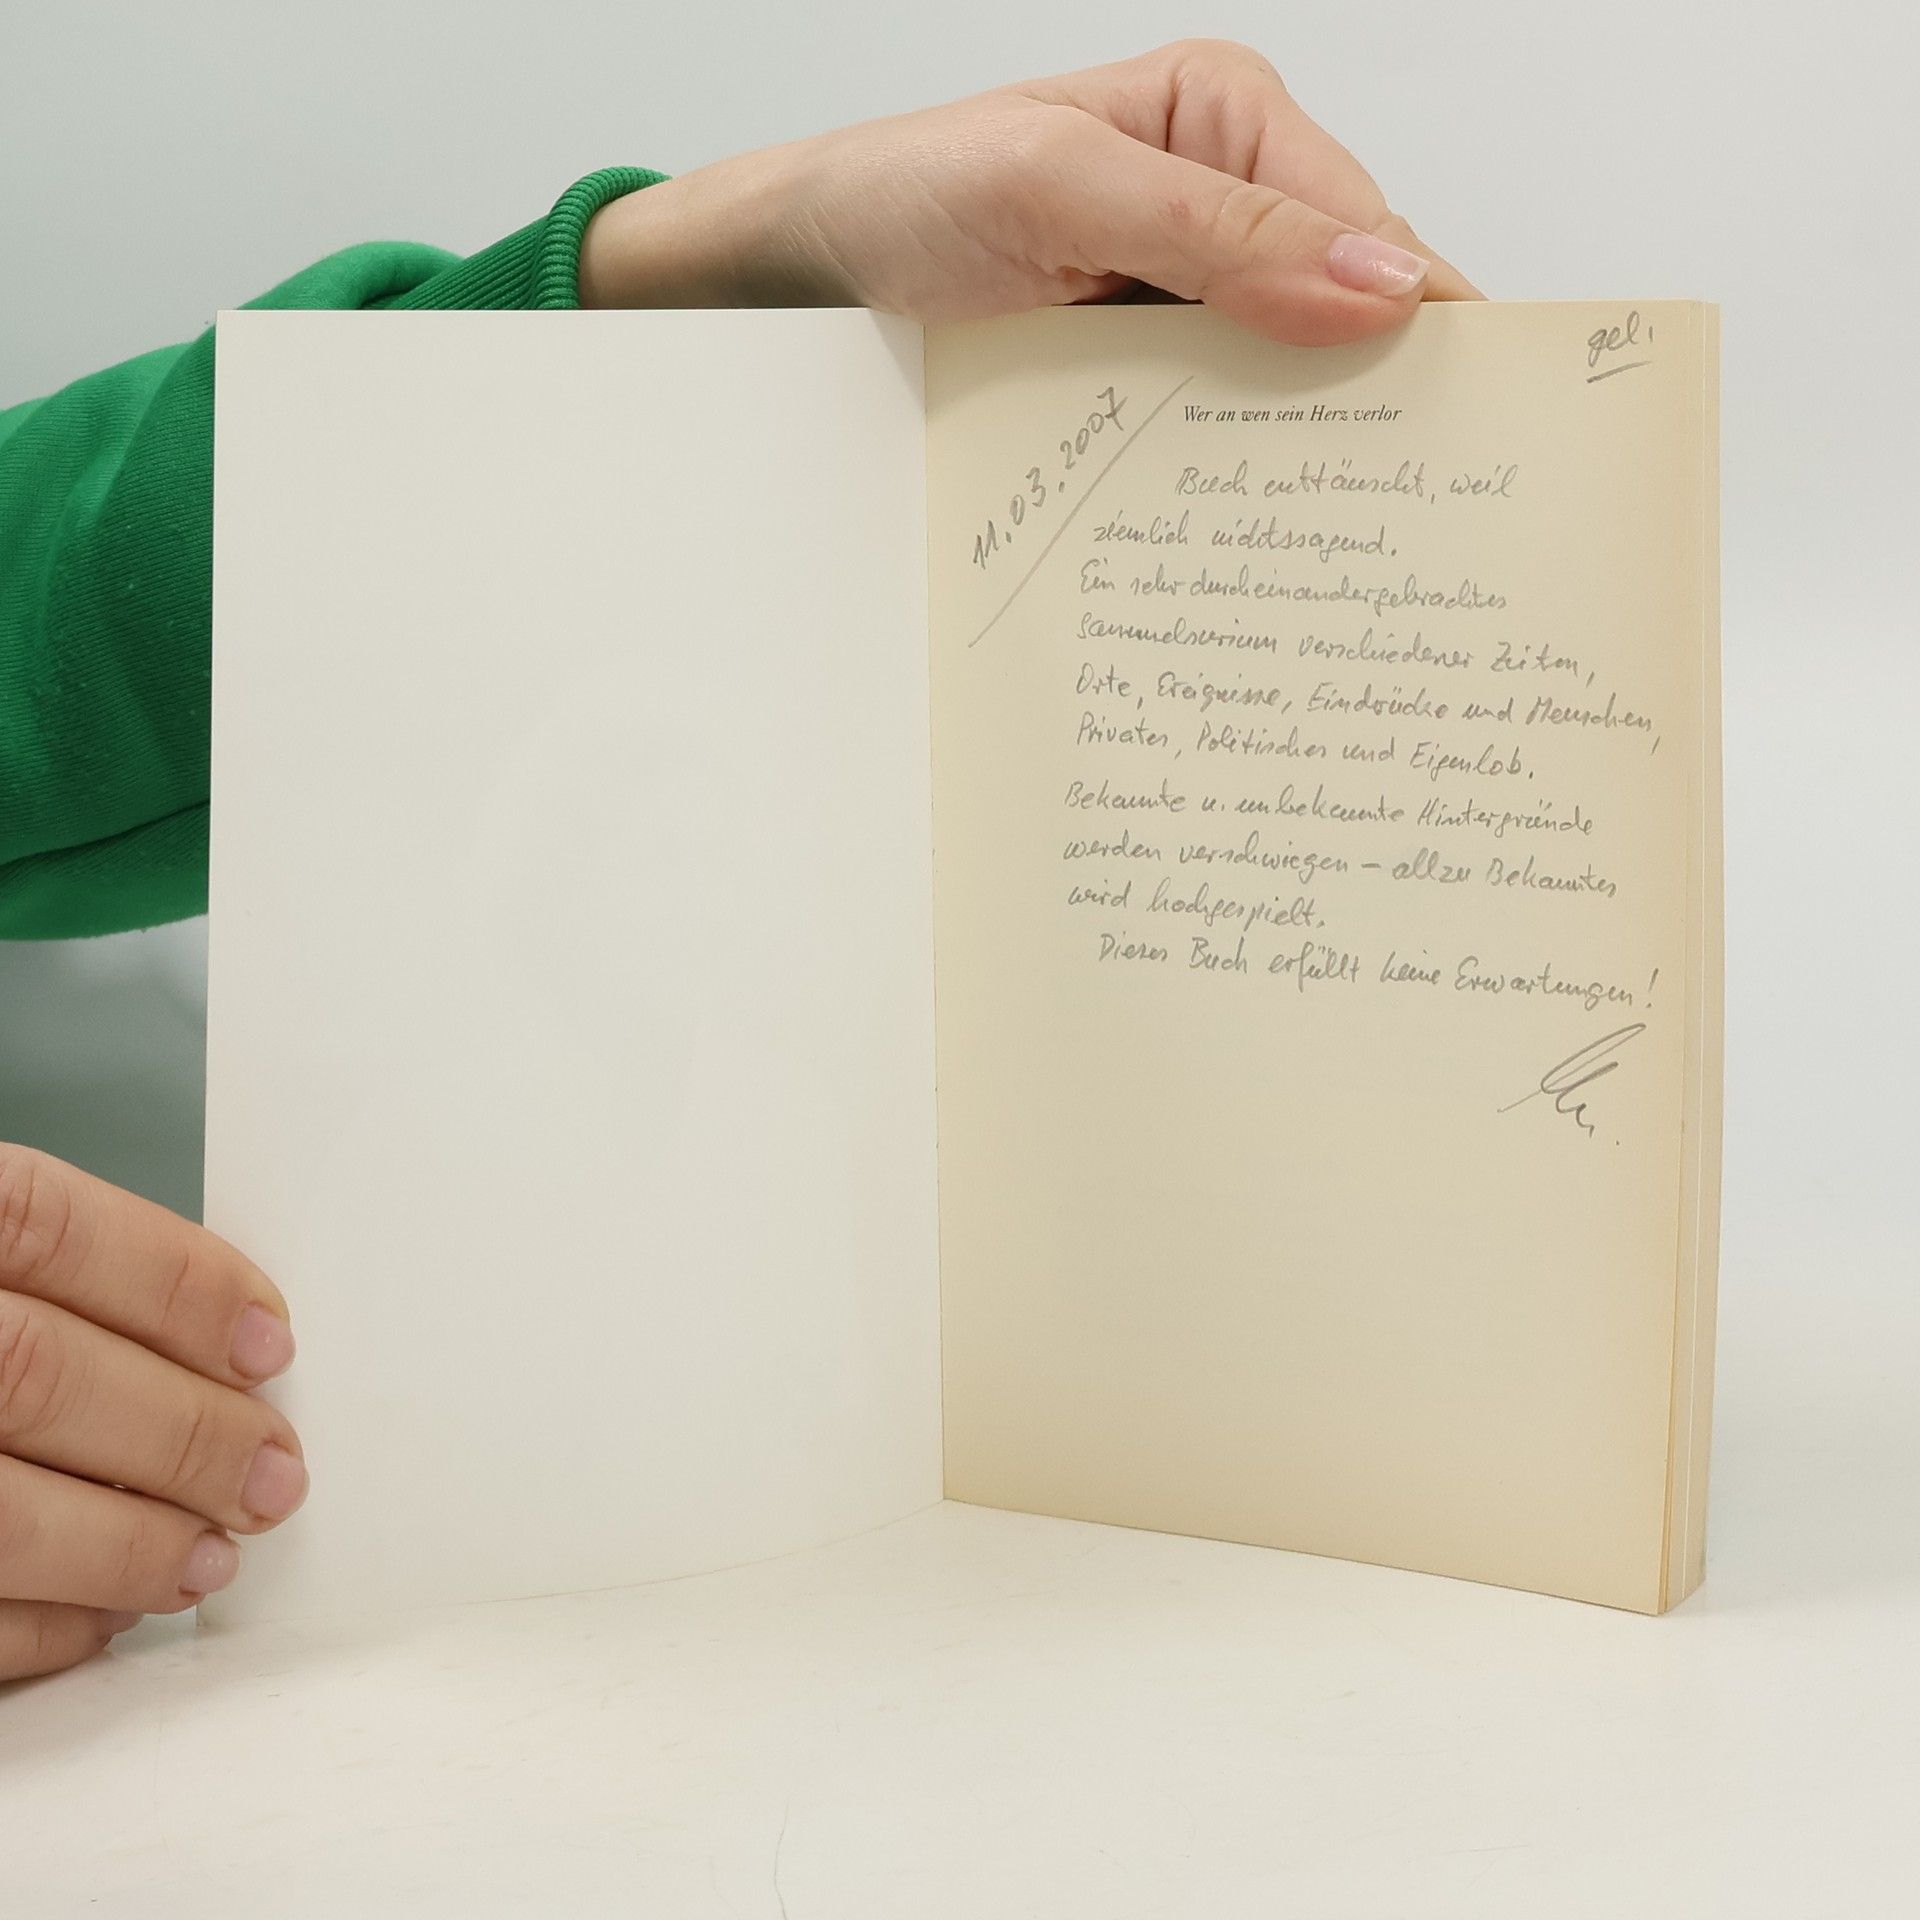 gel.
11.03.2007
Wer an wen sein Herz verlor
Buch enttäuscht, weil
ziemlich nichtssagend.
Ein sehr durcheinandergebrachtes
Sammelsurium verschiedener Zeiten,
Orte, Ereignisse, Eindrücke und Menschen,
Privates, Politisches und Eigenlob.
Bekannte u. unbekannte Hintergründe
werden verschwiegen – allzu Bekanntes
wird hochgespielt.
Dieses Buch erfüllt keine Erwartungen!